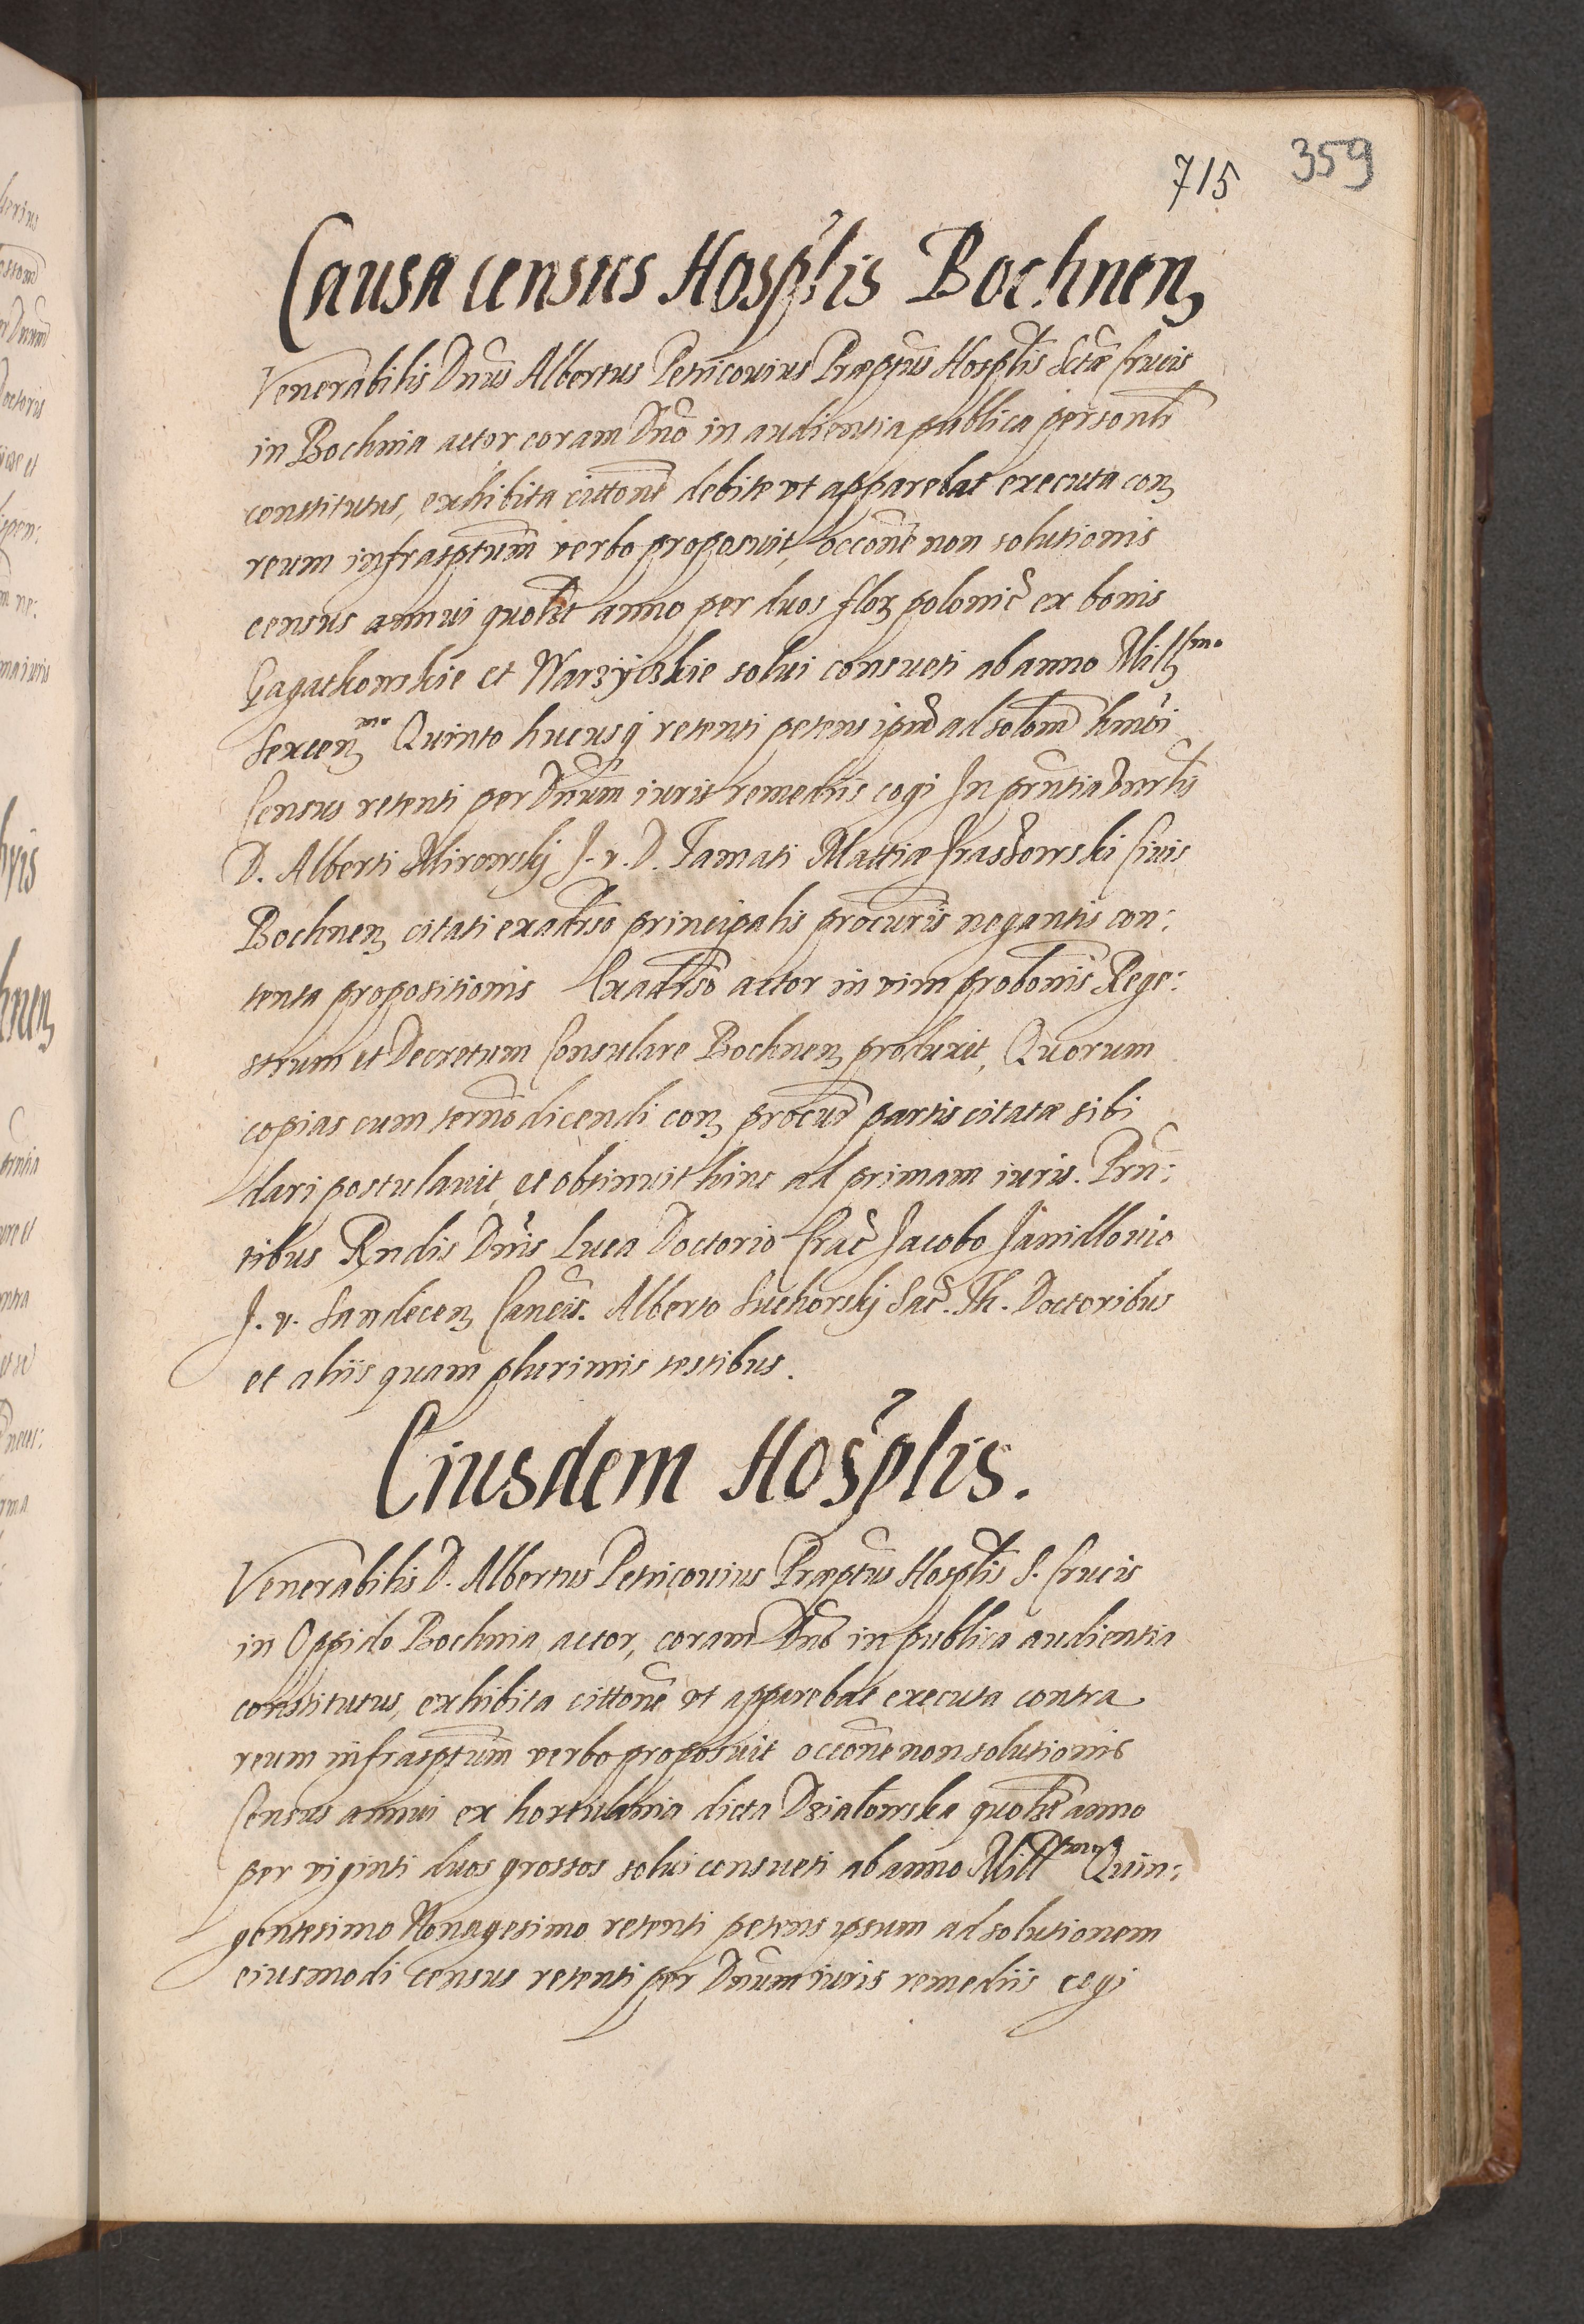 715 359
Causa census Hosplis Bochnen
Venerabilis Dnus Albertus Petricouius Præptus Hosplis Sctæ Crucis
in Bochnia actor coram Dno in audientia publica personlr
constitutus, exhibita cittone debite ut apparebat executa con
reum infrasptum verbo proposuit, occone non solutionis
census annui quolt anno per duos flor polonic ex bonis
Gagatkowskie et Warzyiskie solui consueti ab anno Mill smo
Sexcen mo Quinto hucusq retenti petens ipm ad solom hmoi
Census retenti per Dnum iuris remediis cogi In prntia
D. Alberti Mirowskij J. v. D. Famati Mattiæ Civis
Bochnen citati exadrso principalis procuris negantis con:
tenta propositionis Exadrso actor in vim probonis Rege:
strum et Decretum Consulare Bochnen produxit, Quorum
copias cum termo dicendi con procur partis citatæ sibi
dari postulauit, et obtinuit hinc ad primam iuris. Prn:
tibus Rndis Dnis Luca Doctorio Crac Jacobo Janidlouio
J. v. Sandecen Cancis. Alberto Suchorskj Sac. Th. Doctoribus
et aliis quam plurimis testibus.
Eiusdem Hosplis.
Venerabilis D. Albertus Petricouius Præptus Hosplis S. Crucis
in Oppido Bochnia actor, coram Dno in publica audientia
constitutus, exhibita cittone ut apparebat executa contra
reum infrasptum verbo proposuit occone non solutionis
Census annui ex hortulania dicta Dzialowska quolt anno
per viginti duos grossos solui consueti ab anno Mill smo Quin:
gentesimo Nonagesimo retenti petens ipsum ad solutionem
eiusmodi census retenti per Dnum iuris remediis cogi